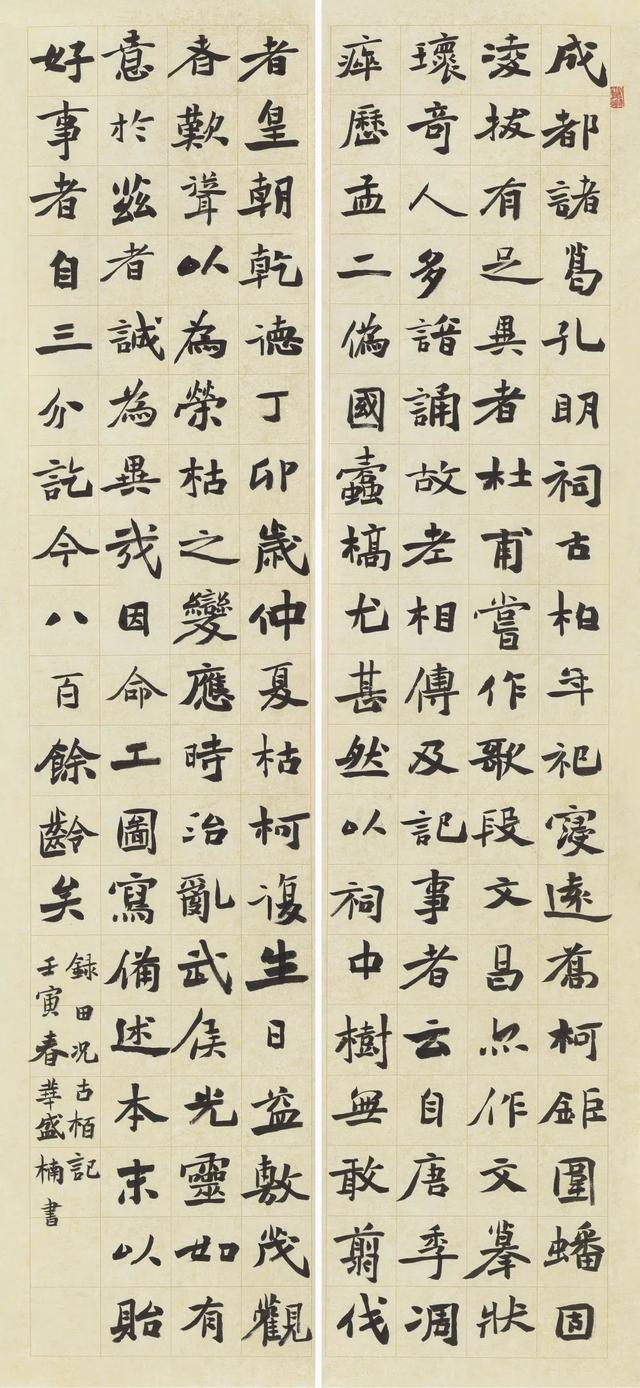 成都諸葛孔明祠古柏年祀寖遠喬柯鉅圍蟠固
凌拔有足異者杜甫嘗作歌段文昌亦作文摹狀
瓌奇人多諳誦故老相傳及記事者云自唐季凋
瘁歷孟二偽國蠹槁尤甚然以祠中樹無敢翦伐
者皇朝乾德丁卯歲仲夏枯柯復生日益敷茂觀
者歎聳以為榮枯之變應時治亂武侯光靈如有
意於茲者誠為異哉因命工圖寫備述本末以貽
好事者自三分訖今八百餘齡矣
録田况古栢記
壬寅春華盛楠書